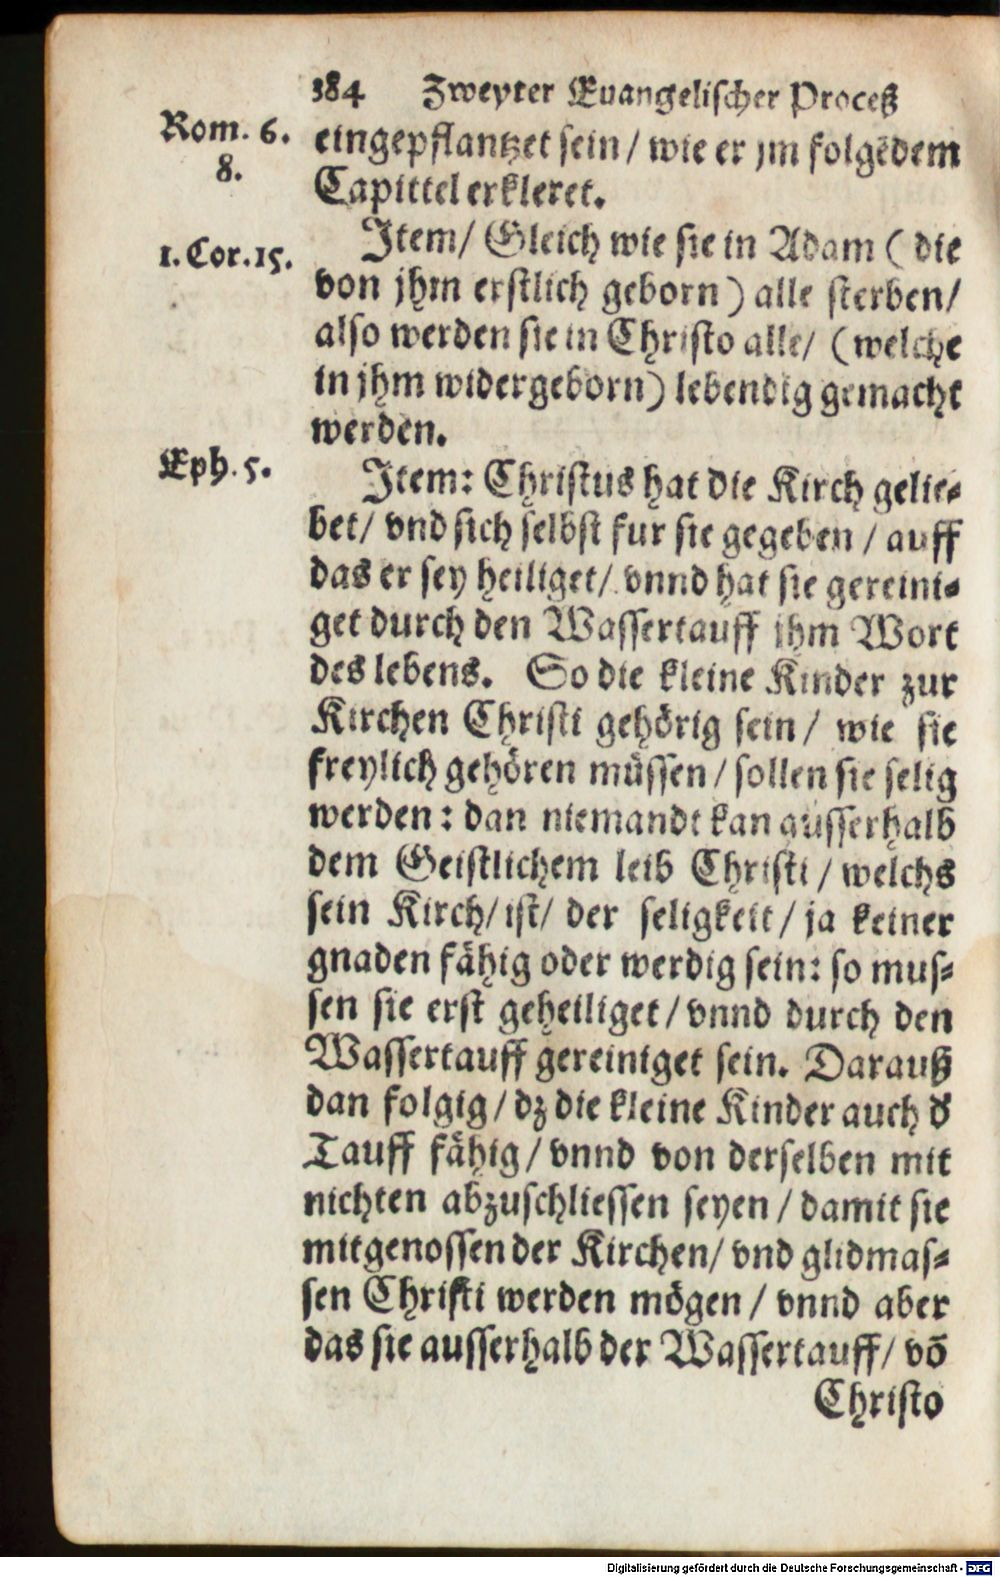 384 Zweyter Euangelischer Proceß
Rom. 6.
8.
eingepflantzet sein / wie er jm folgẽdem
Capittel erkleret.
1. Cor. 15.
Item / Gleich wie sie in Adam ( die
von jhm erstlich geborn ) alle sterben /
also werden sie in Christo alle / ( welche
in jhm widergeborn ) lebendig gemacht
werden.
Eph. 5.
Item: Christus hat die Kirch gelie-
bet / vnd sich selbst fur sie gegeben / auff
das er sey heiliget / vnnd hat sie gereini-
get durch den Wassertauff jhm Wort
des lebens. So die kleine Kinder zur
Kirchen Christi gehörig sein / wie sie
freylich gehören müssen / sollen sie selig
werden: dan niemandt kan ausserhalb
dem Geistlichem leib Christi / welchs
sein Kirch / ist / der seligkeit / ja keiner
gnaden fähig oder werdig sein: so mus-
sen sie erst geheiliget / vnnd durch den
Wassertauff gereiniget sein. Darauß
dan folgig / dz die kleine Kinder auch d'
Tauff fähig / vnnd von derselben mit
nichten abzuschliessen seyen / damit sie
mitgenossen der Kirchen / vnd glidmas-
sen Christi werden mögen / vnnd aber
das sie ausserhalb der Wassertauff / võ
Christo
Digitalisierung gefördert durch die Deutsche Forschungsgemeinschaft - DFG